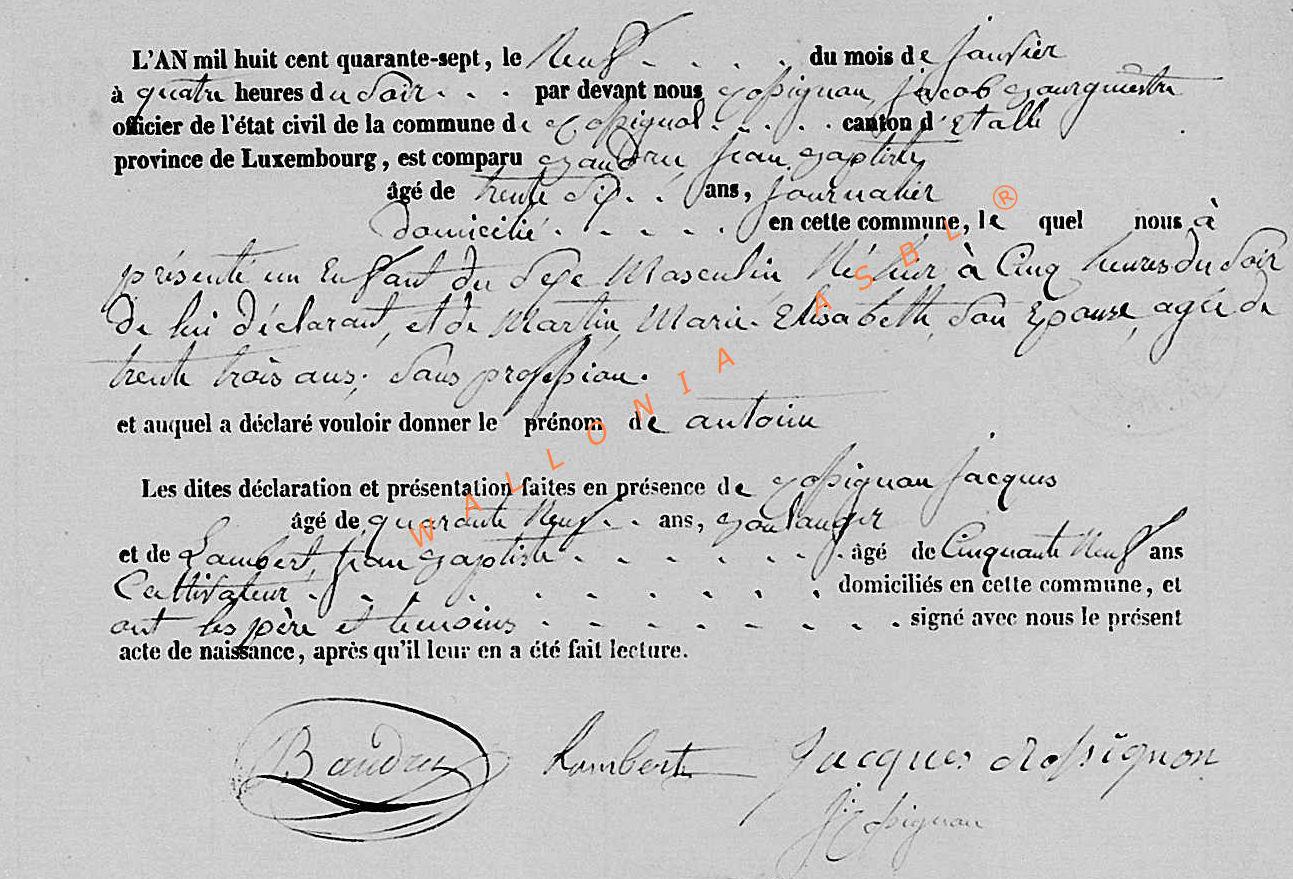 L'AN mil huit cent quarante-sept, le Neuf . . . . du mois de janvier
à quatre heures du Soir . . . par devant nous Rossignon, jacob Bourgmestre
officier de l'état civil de la commune de Rossignol . . . . . canton d'Etalle
province de Luxembourg, est comparu Baudru jean Baptiste
âgé de trente Six . . ans, journalier
domicilié . . . . . en cette commune, le quel nous à
présenté un Enfant du Sexe Masculin Né hier à Cinq heures du Soir
de lui déclarant, et de Martin, Marie. Elisabeth, Son Epouse, agée de
trente trois ans, Sans profession.
et auquel a déclaré vouloir donner le prénom de antoine
Les dites déclaration et présentation faites en présence de Rossignon jacques
âgé de quarante Neuf . . ans, Boulanger
et de Lambert, jean Baptiste . . . . . . . . âgé de Cinquante Neuf ans
Cultivateur . . . . . . . . . . domiciliés en cette commune, et
ont les père et temoins . . . . . . . . . signé avec nous le présent
acte de naissance, après qu'il leur en a été fait lecture.
Baudru Lambert Jacques Rossignon
J Rossignon
WALLONIA ASBL ®